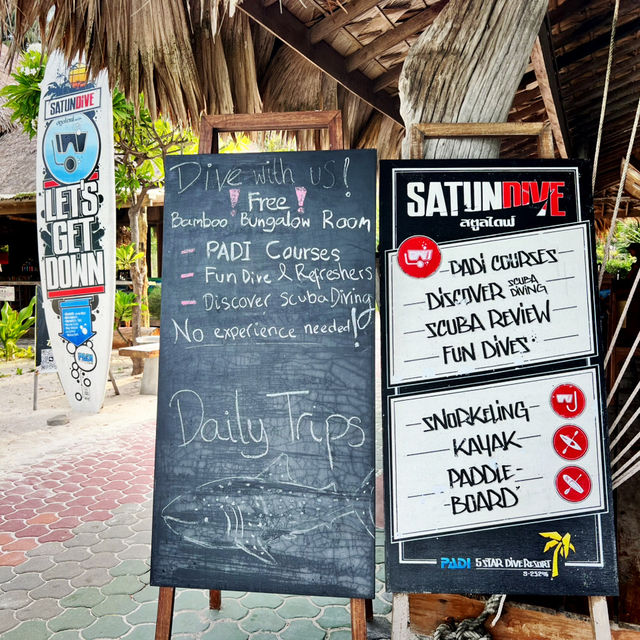 SATUNDIVE
LET'S
GET
DOWN
PADI
Dive with us!
! Free !
Bamboo Bungalow Room
- PADI Courses
- Fun Dive & Refreshers
- Discover Scuba Diving
No experience needed!
Daily Trips
SATUNDIVE
สตูลไดฟ์
PADI COURSES
DISCOVER SCUBA DIVING
SCUBA REVIEW
FUN DIVES
SNORKELING
KAYAK
PADDLE-
BOARD
PADI 5 STAR DIVE RESORT